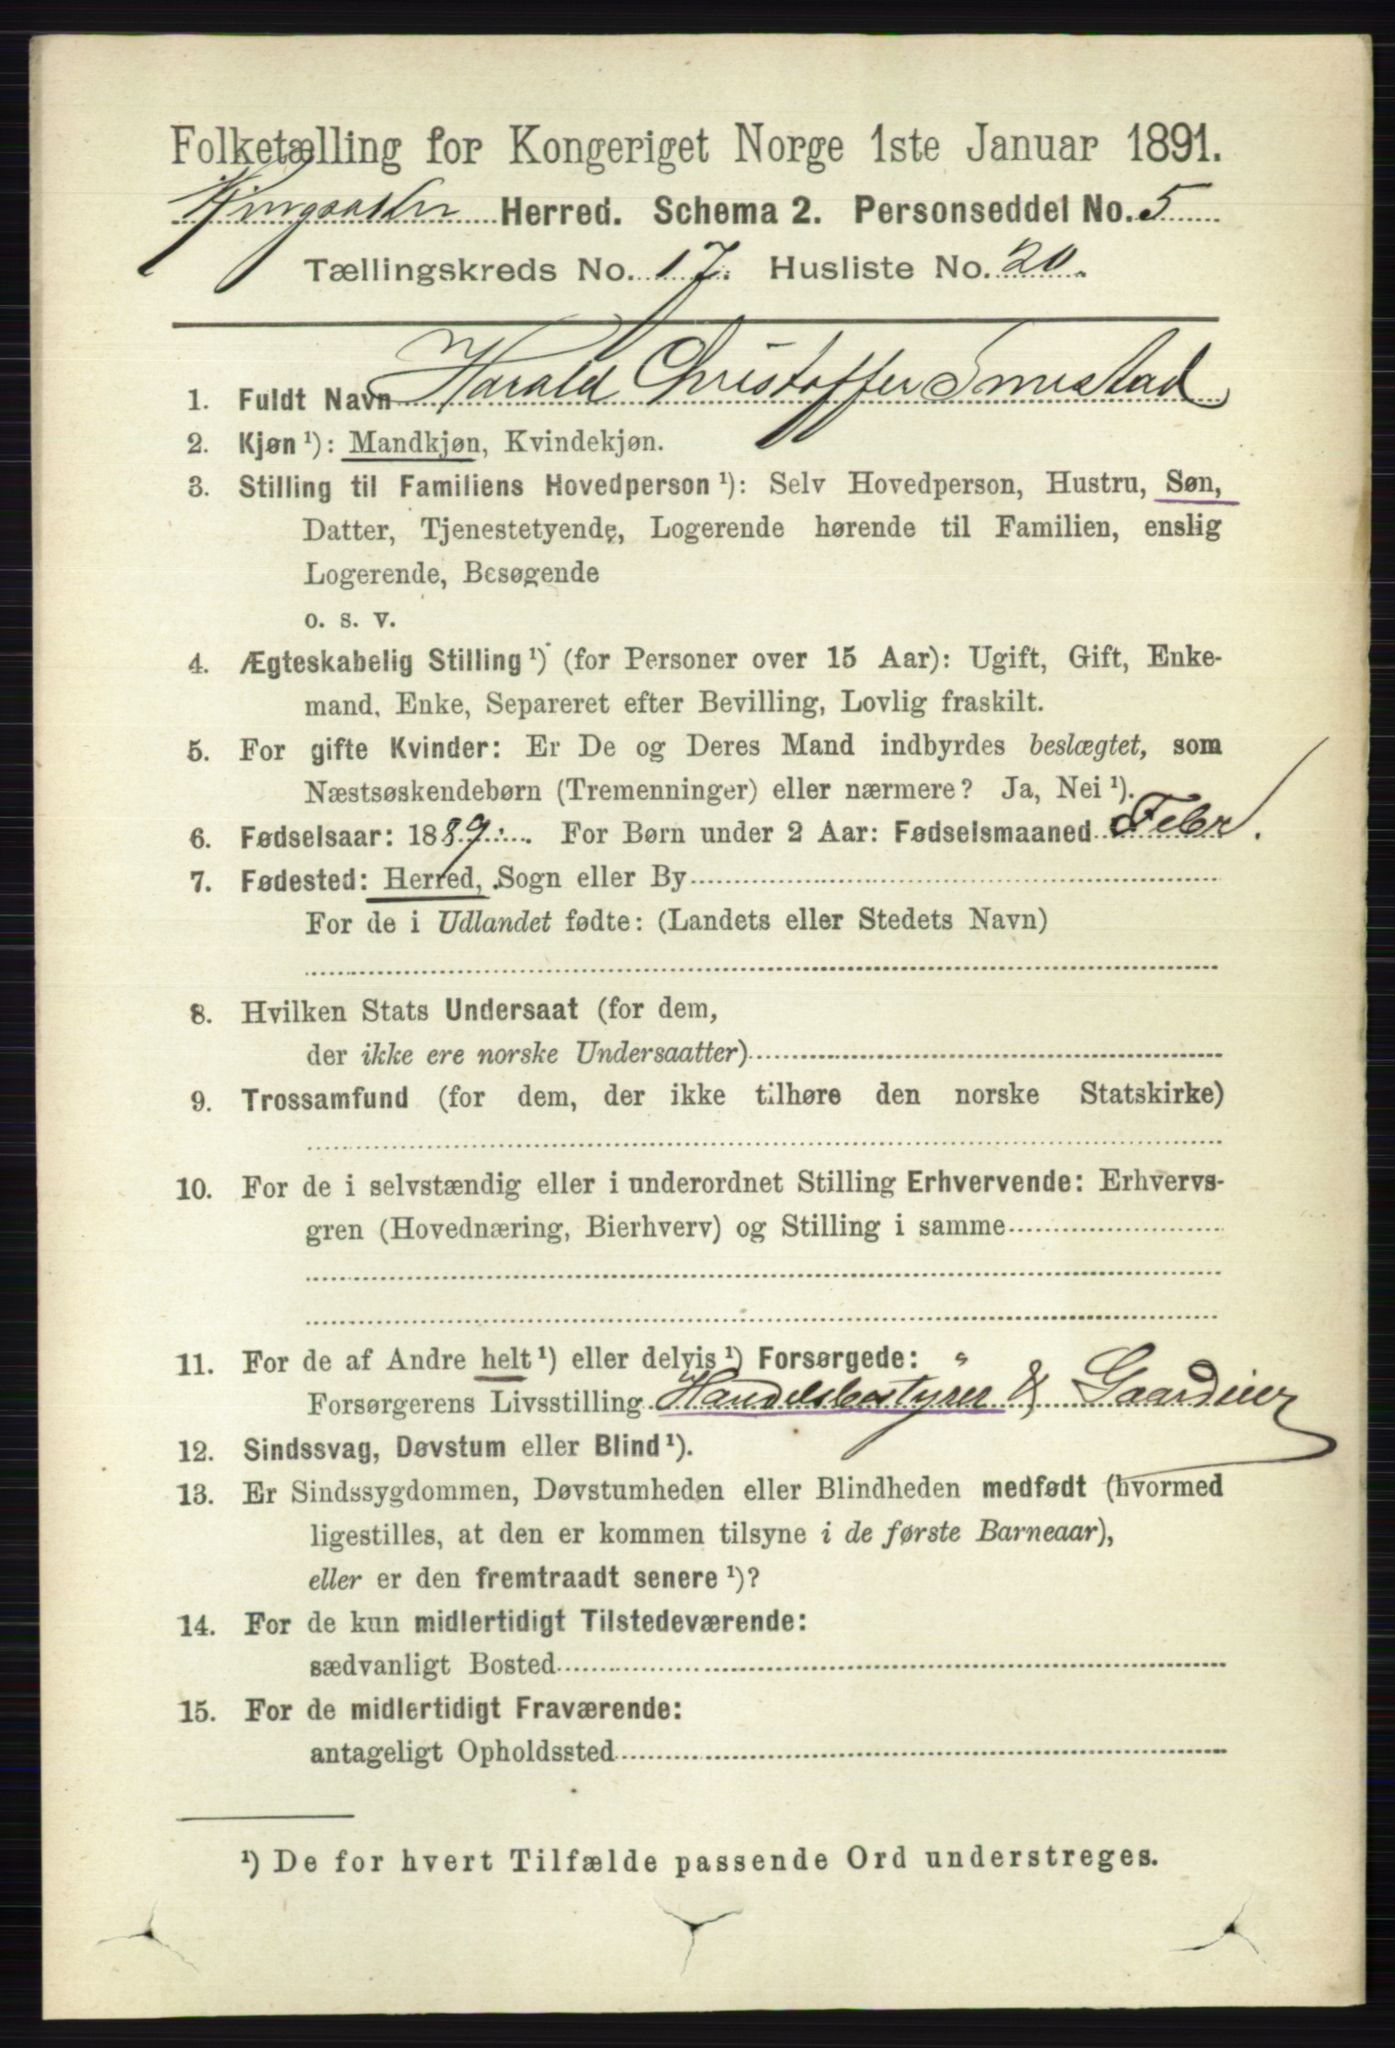 Folketælling for Kongeriget Norge 1ste Januar 1891.
Ringsaker Herred. Schema 2. Personseddel No. 5
Tællingskreds No. 17. Husliste No. 20.
1. Fuldt Navn Harald Christoffer Smestad
2. Kjøn ¹): Mandkjøn, Kvindekjøn.
3. Stilling til Familiens Hovedperson ¹): Selv Hovedperson, Hustru, Søn,
Datter, Tjenestetyende, Logerende hørende til Familien, enslig
Logerende, Besøgende
o. s. v.
4. Ægteskabelig Stilling ¹) (for Personer over 15 Aar): Ugift, Gift, Enke-
mand, Enke, Separeret efter Bevilling, Lovlig fraskilt.
5. For gifte Kvinder: Er De og Deres Mand indbyrdes beslægtet, som
Næstsøskendebørn (Tremenninger) eller nærmere? Ja, Nei ¹).
6. Fødselsaar: 1889. For Børn under 2 Aar: Fødselsmaaned Febr.
7. Fødested: Herred, Sogn eller By
For de i Udlandet fødte: (Landets eller Stedets Navn)
8. Hvilken Stats Undersaat (for dem,
der ikke ere norske Undersaatter)
9. Trossamfund (for dem, der ikke tilhøre den norske Statskirke)
10. For de i selvstændig eller i underordnet Stilling Erhvervende: Erhvervs-
gren (Hovednæring, Bierhverv) og Stilling i samme
11. For de af Andre helt ¹) eller delvis ¹) Forsørgede:
Forsørgerens Livsstilling Handelsbestyrer & Gaardeier
12. Sindssvag, Døvstum eller Blind ¹).
13. Er Sindssygdommen, Døvstumheden eller Blindheden medfødt (hvormed
ligestilles, at den er kommen tilsyne i de første Barneaar),
eller er den fremtraadt senere ¹)?
14. For de kun midlertidigt Tilstedeværende:
sædvanligt Bosted
15. For de midlertidigt Fraværende:
antageligt Opholdssted
¹) De for hvert Tilfælde passende Ord understreges.